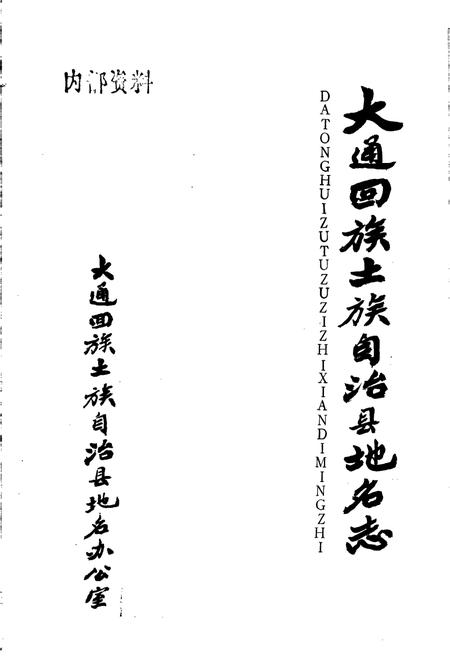 内部资料
大通回族土族自治县地名志
DATONGHUIZUTUZUZIZHIXIANDIMINGZHI
大通回族土族自治县地名办公室